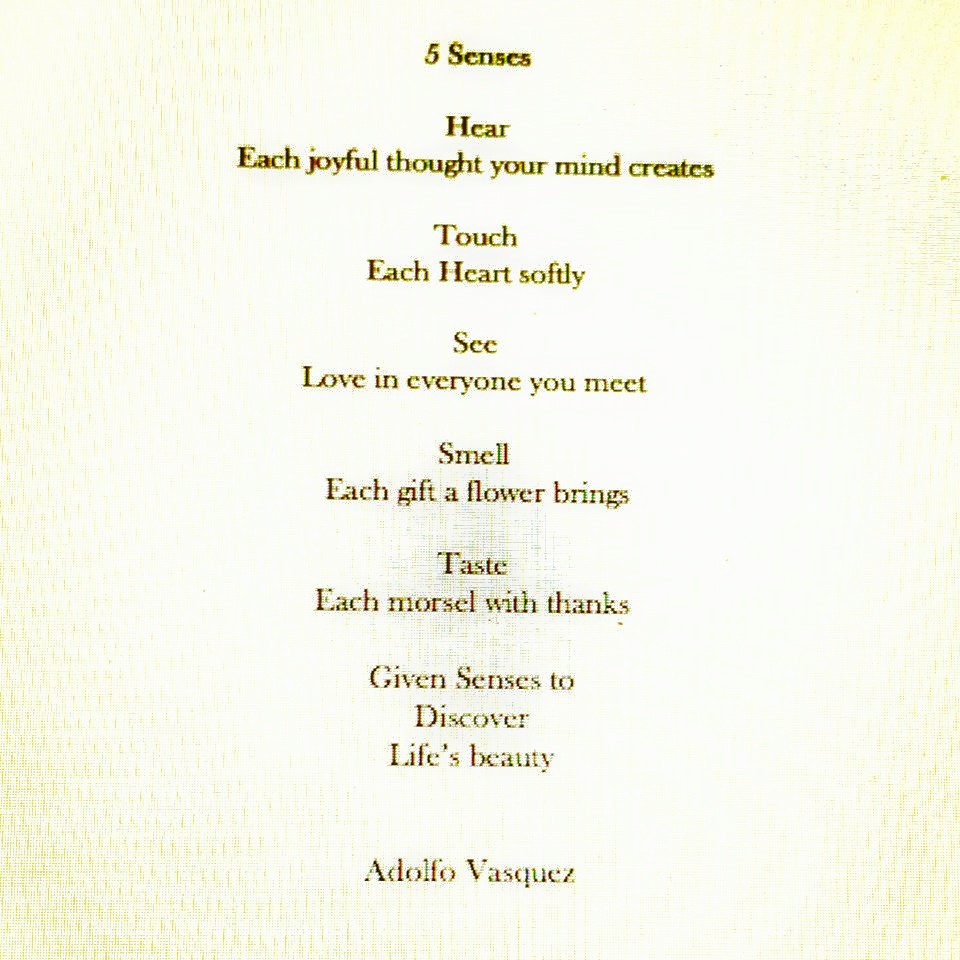 5 Senses
Hear
Each joyful thought your mind creates
Touch
Each Heart softly
See
Love in everyone you meet
Smell
Each gift a flower brings
Taste
Each morsel with thanks
Given Senses to
Discover
Life's beauty
Adolfo Vasquez